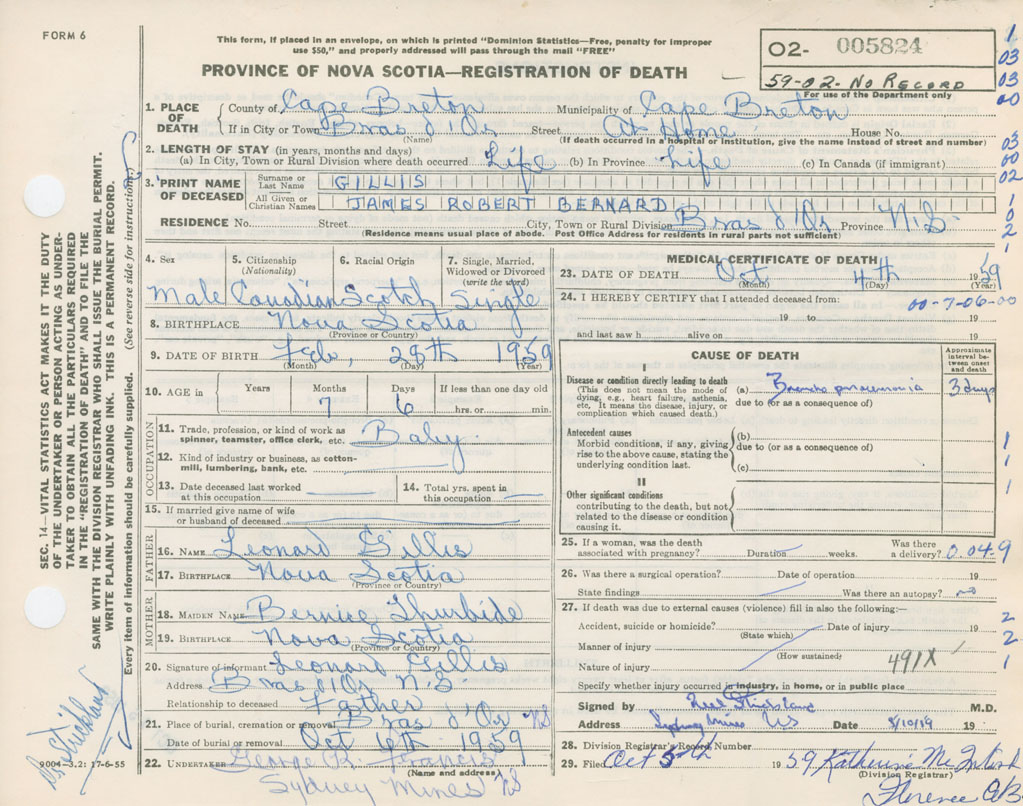 FORM 6
This form, if placed in an envelope, on which is printed "Dominion Statistics—Free, penalty for improper
use $50," and properly addressed will pass through the mail "FREE"
O2- 005824
59-02- No Record
For use of the Department only
PROVINCE OF NOVA SCOTIA—REGISTRATION OF DEATH
1
03
03
00
03
00
02
1
0
2
1
1. PLACE OF DEATH
County of Cape Breton Municipality of Cape Breton
If in City or Town Bras d'Or Street At Home House No.
(Name) (If death occurred in a hospital or institution, give the name instead of street and number)
2. LENGTH OF STAY (in years, months and days)
(a) In City, Town or Rural Division where death occurred Life (b) In Province Life (c) In Canada (if immigrant)
3. PRINT NAME OF DECEASED
Surname or Last Name GILLIS
All Given or Christian Names JAMES ROBERT BERNARD
RESIDENCE No. Street City, Town or Rural Division Bras d'Or Province N.S.
(Residence means usual place of abode. Post Office Address for residents in rural parts not sufficient)
4. Sex 5. Citizenship (Nationality) 6. Racial Origin 7. Single, Married, Widowed or Divorced (write the word)
Male Canadian Scotch Single
8. BIRTHPLACE Nova Scotia
(Province or Country)
9. DATE OF BIRTH Feb, 28th 1959
(Month) (Day) (Year)
10. AGE in Years Months Days If less than one day old
7 6 hrs. or min.
OCCUPATION
11. Trade, profession, or kind of work as
spinner, teamster, office clerk, etc. Baby.
12. Kind of industry or business, as cotton-
mill, lumbering, bank, etc.
13. Date deceased last worked
at this occupation
14. Total yrs. spent in
this occupation
15. If married give name of wife
or husband of deceased
FATHER
16. NAME Leonard Gillis
17. BIRTHPLACE Nova Scotia
(Province or Country)
MOTHER
18. MAIDEN NAME Bernice Thurbide
19. BIRTHPLACE Nova Scotia
(Province or Country)
20. Signature of informant Leonard Gillis
Address Bras d'Or N.S
Relationship to deceased Father
21. Place of burial, cremation or removal Bras d'Or NS
Date of burial or removal Oct 6th 1959
22. UNDERTAKER George R. Francis
(Name and address)
Sydney Mines NS
9004-3.2: 17-6-55
MEDICAL CERTIFICATE OF DEATH
23. DATE OF DEATH Oct 4th 1959
(Month) (Day) (Year)
24. I HEREBY CERTIFY that I attended deceased from: 00-7-06-00
19 to 19
and last saw h alive on 19
CAUSE OF DEATH
Approximate interval between onset and death
I
Disease or condition directly leading to death
(This does not mean the mode of
dying, e.g., heart failure, asthenia,
etc. It means the disease, injury, or
complication which caused death.)
(a) Broncho pneumonia 3 days
due to (or as a consequence of)
Antecedent causes
Morbid conditions, if any, giving
rise to the above cause, stating the
underlying condition last.
(b)
due to (or as a consequence of)
(c)
1
1
1
II
Other significant conditions
contributing to the death, but not
related to the disease or condition
causing it.
25. If a woman, was the death
associated with pregnancy? Duration weeks. Was there a delivery? 0.04-9
26. Was there a surgical operation? Date of operation 19
State findings Was there an autopsy? no
27. If death was due to external causes (violence) fill in also the following:—
Accident, suicide or homicide? Date of injury 19
(State which)
Manner of injury
(How sustained)
Nature of injury
491X
2
2
1
Specify whether injury occurred in industry, in home, or in public place
Signed by Neil Strickland M.D.
Address Sydney Mines NS Date 5/10/19 19
28. Division Registrar's Record Number
29. Filed Oct 5th 1959 Katherine McIntosh
(Division Registrar)
Florence CB
SEC. 14—VITAL STATISTICS ACT MAKES IT THE DUTY
OF THE UNDERTAKER OR PERSON ACTING AS UNDER-
TAKER TO OBTAIN ALL THE PARTICULARS REQUIRED
IN THE "REGISTRATION OF DEATH" AND TO FILE THE
SAME WITH THE DIVISION REGISTRAR WHO SHALL ISSUE THE BURIAL PERMIT.
WRITE PLAINLY WITH UNFADING INK. THIS IS A PERMANENT RECORD.
Every item of information should be carefully supplied. (See reverse side for instructions.)
Dr Strickland